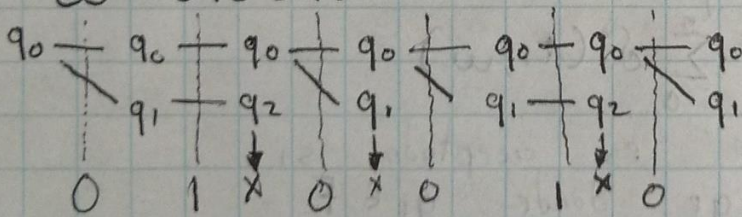 q0 q0 q0 q0 q0 q0 q0
q1 q2 q1 q1 q2 q1
0 1 x 0 x 0 1 x 0